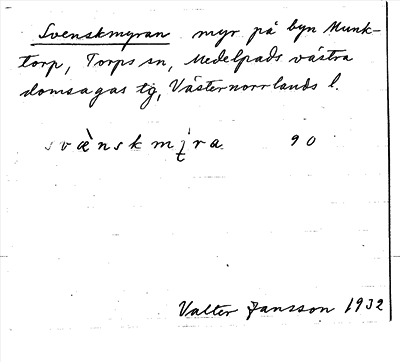 Svenskmyran myr på byn Munk-
torp, Torps sn, Medelpads västra
domsagas tg, Västernorrlands l.
svæ̀nskmy̨ra 90
Valter Jansson 1932